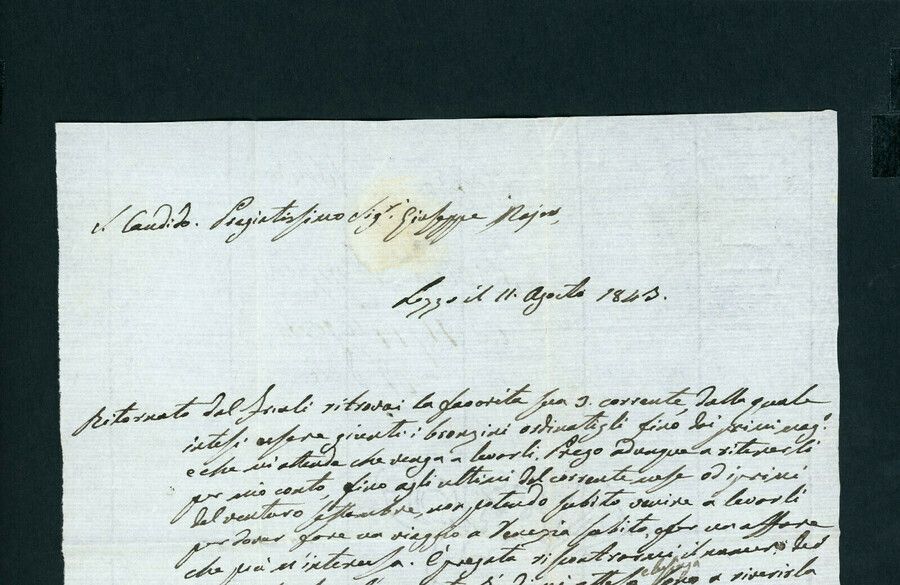 S. Candido. Pregiatissimo Sigr. Giuseppe Major
Lozzo il 11. Agosto 1843.
Ritornato dal Friuli ritrovai la favorita sua 3. corrente dalla quale
intesi essere giunti i bronzini ordinatigli fino dai primi mago
e che m'attende che venga a levarli. Prego adunque a ritenerli
per mio conto, fino agli ultimi del corrente mese od i primi
del venturo settembre, non potendo subito venire a levarli
per dover fare un viaggio a Venezia subito, per un affare
che più m'interessa. È pregata riscontrarmi il numero dei
a riverirla